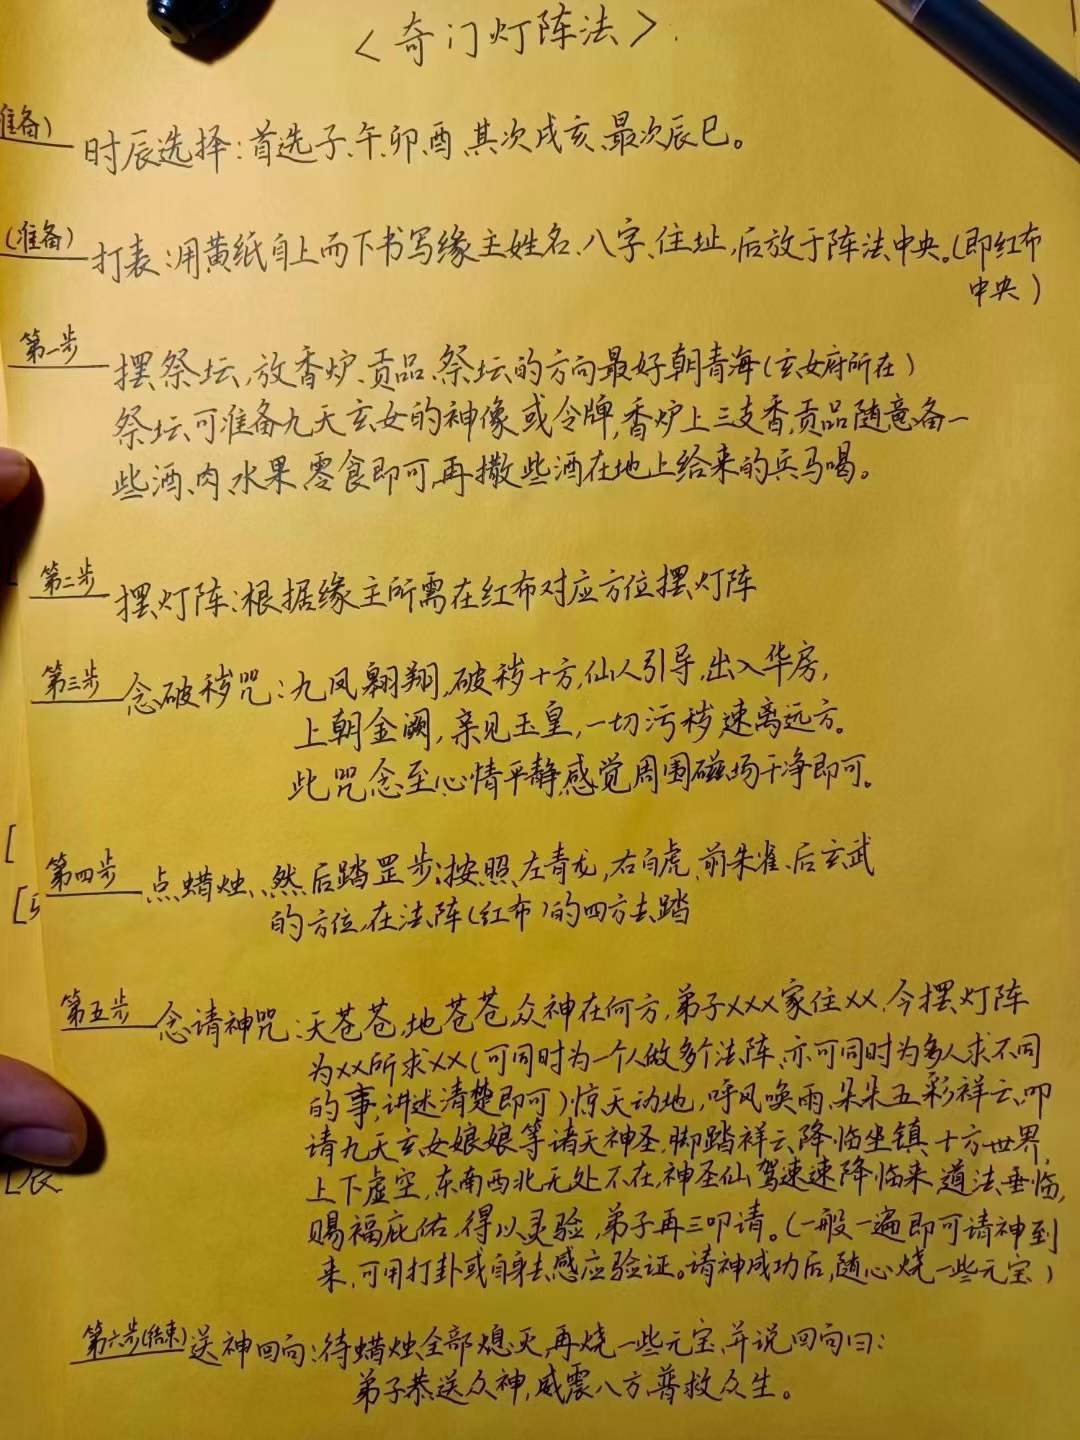 <奇门灯阵法>.
准备)
时辰选择:首选子、午、卯、酉、其次戌亥、最次辰巳。
(准备)
打表:用黄纸自上而下书写缘主姓名、八字、住址,后放于阵法中央。(即红布
中央)
第一步
摆祭坛,放香炉、贡品、祭坛的方向最好朝青海(玄女府所在)
祭坛可准备九天玄女的神像或令牌,香炉上三支香,贡品随意备一
些酒、肉、水果、零食即可,再撒些酒在地上给来的兵马喝。
第二步
摆灯阵:根据缘主所需在红布对应方位摆灯阵
第三步
念破秽咒:九凤翱翔,破秽十方,仙人引导,出入华房,
上朝金阙,亲见玉皇,一切污秽速离远方。
此咒念至心情平静,感觉周围磁场干净即可。
第四步
点蜡烛、然后踏罡步:按照左青龙,右白虎、前朱雀、后玄武
的方位,在法阵(红布)的四方去踏
第五步
念请神咒:天苍苍,地苍苍,众神在何方,弟子XXX家住XX,今摆灯阵
为XX所求XX(可同时为一个人做多个法阵、亦可同时为多人求不同
的事,讲述清楚即可)惊天动地,呼风唤雨、朵朵五彩祥云、叩
请九天玄女娘娘等诸天神圣,脚踏祥云、降临坐镇十方世界,
上下虚空,东南西北无处不在,神圣仙驾速速降临来,道法垂临,
赐福庇佑,得以灵验,弟子再三叩请。(一般一遍即可请神到
来,可用打卦或自身去感应验证。请神成功后,随心烧一些元宝)
第六步(结束)
送神回向:待蜡烛全部熄灭,再烧一些元宝,并说回向曰:
弟子恭送众神,威震八方,普救众生。
[
[
[辰